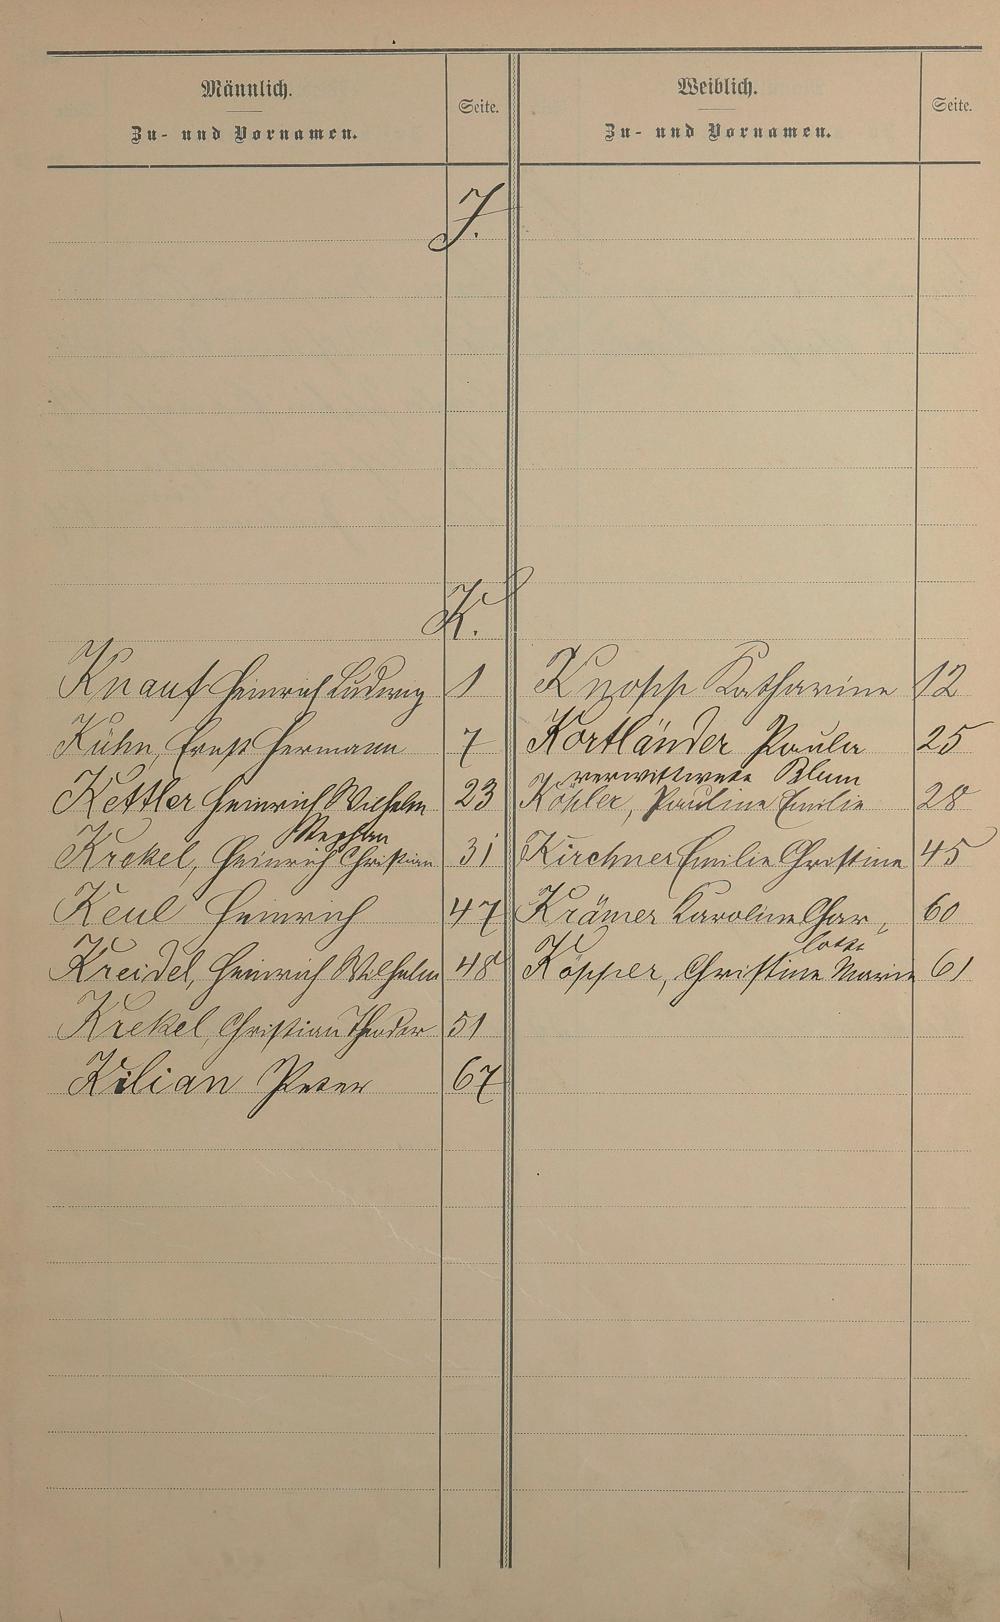 Männlich.
Zu- und Vornamen.
Seite.
Weiblich.
Zu- und Vornamen.
Seite.
J.
K.
Knauf Heinrich Ludwig 1 Knopp Katharine 12
Kühn, Ernst Hermann 7 Kortländer Paula 25
verwittwete Blum
Kettler Heinrich Wilhelm 23 Köhler, Pauline Emilie 28
Stephan
Krekel, Heinrich Christian 31 Kirchner Emilie Christine 45
Keul Heinrich 47 Krämer Karoline Char, 60
lotte
Kreidel, Heinrich Wilhelm 48 Köpper, Christine Marie 61
Krekel, Christian Theodor 51
Kilian Peter 67